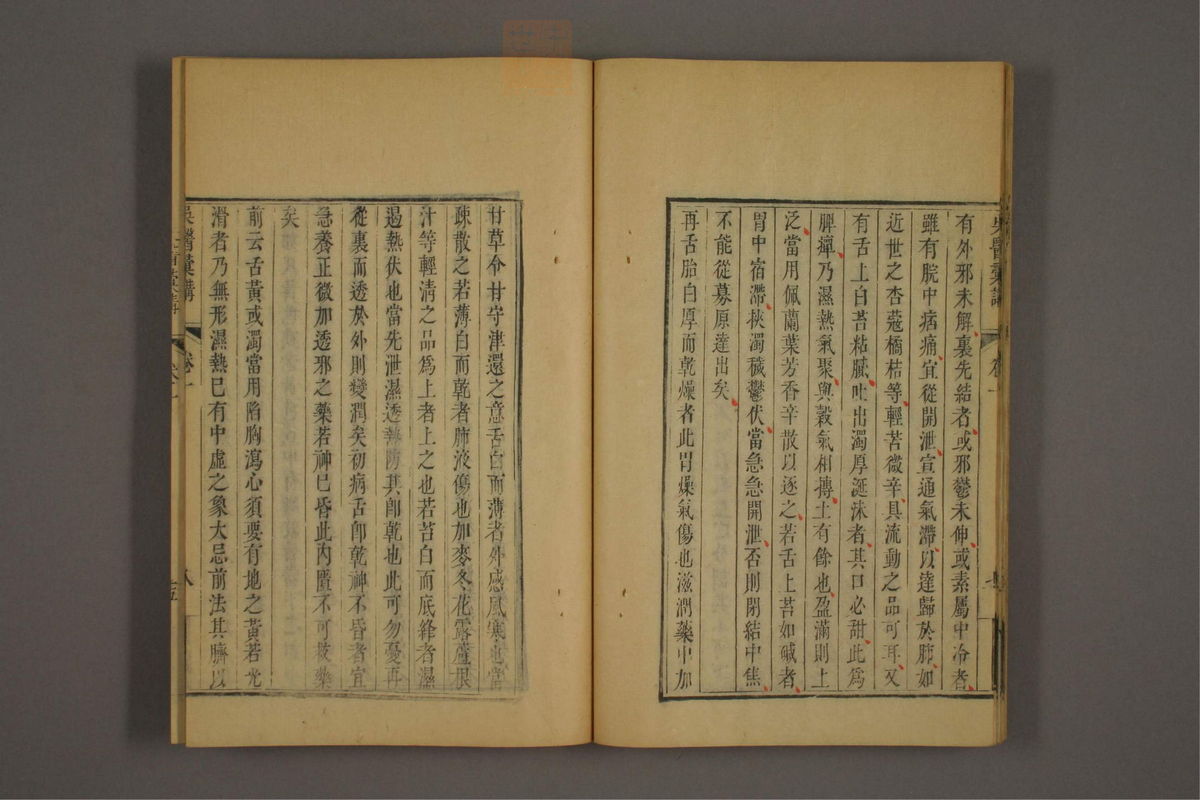 有外邪未解裏先結者或邪鬱未伸或素屬中冷者
雖有脘中痞痛宜從開泄宣通氣滯以達歸於肺如
近世之杏蔻橘桔等輕苦微辛具流動之品可耳又
有舌上白苔粘膩吐出濁厚涎沫者其口必甜此爲
脾癉乃濕熱氣聚與穀氣相摶土有餘也盈滿則上
泛當用佩蘭葉芳香辛散以逐之若舌上苔如碱者
胃中宿滯挾濁穢鬱伏當急急開泄否則閉結中焦
不能從募原達出矣
再舌胎白厚而乾燥者此胃燥氣傷也滋潤藥中加
甘草令甘守津還之意舌白而薄者外感風寒也當
疎散之若薄白而乾者肺液傷也加麥冬花露蘆根
汁等輕清之品爲上者上之也若苔白而底絳者濕
遏熱伏也當先泄濕透熱防其卽乾也此可勿憂再
從裏而透於外則變潤矣初病舌卽乾神不昏者宜
急養正微加透邪之藥若神已昏此內匱不可救藥
矣
前云舌黃或濁當用陷胸瀉心須要有地之黃若光
滑者乃無形濕熱已有中虛之象大忌前法其臍以
吳醫彙講
卷一
八